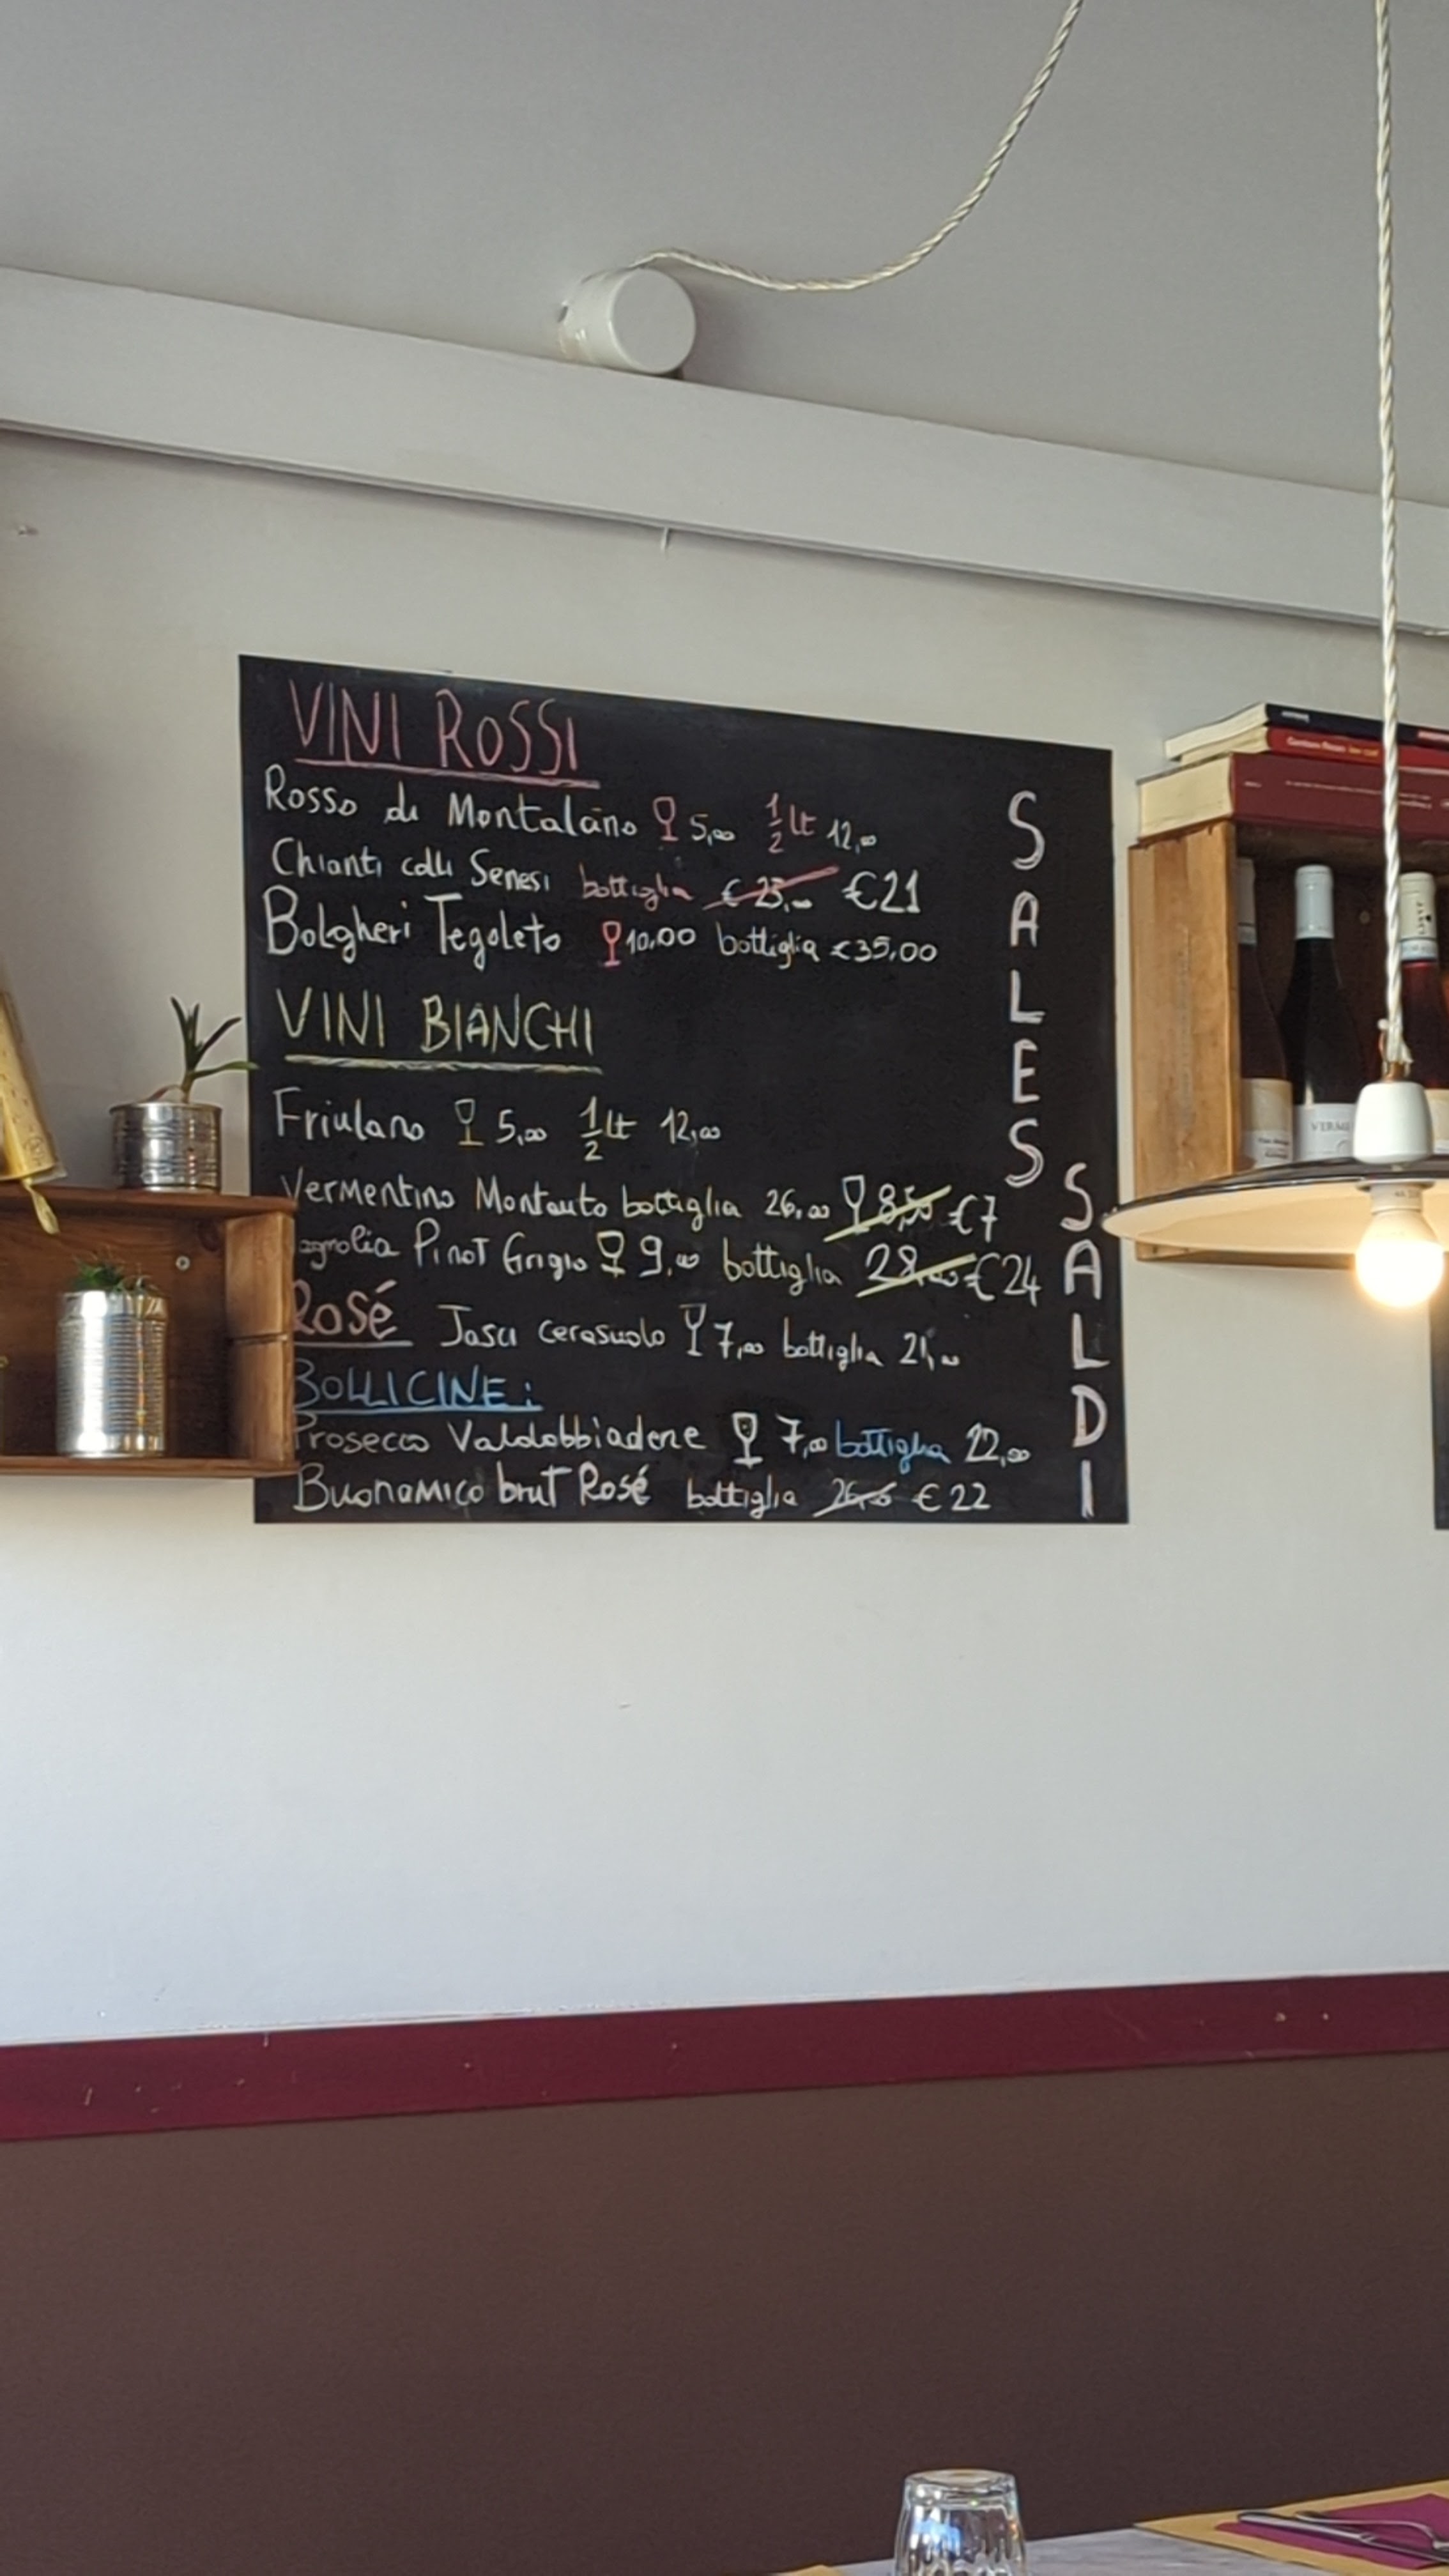 VINI ROSSI
Rosso di Montalcino 5,00 1/2 lt 12,00
Chianti colli Senesi bottiglia € 25,00 €21
Bolgheri Tegoleto 10,00 bottiglia €35,00
VINI BIANCHI
Friulano 5,00 1/2 lt 12,00
Vermentino Montauto bottiglia 26,00 8,50 €7
agnolia Pinot Grigio 9,00 bottiglia 28,00 €24
Rosé Jasci Cerasuolo 7,00 bottiglia 21,00
BOLLICINE:
Prosecco Valdobbiadene 7,00 bottiglia 22,00
Buonamico brut Rosé bottiglia €22
SALES
SALDI
VERME